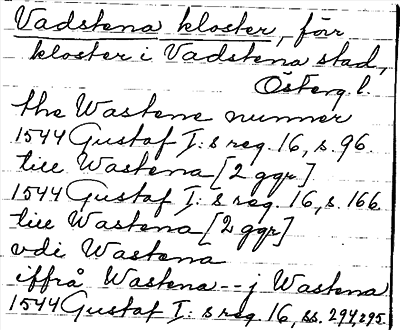 Vadstena kloster, förr
kloster i Vadstena stad,
Österg. l.
the Wastene nunner
1544 Gustaf I:s reg. 16, s. 96.
till Wastena [2 ggr]
1544 Gustaf I:s reg. 16, s. 166
till Wastena [2 ggr]
vdi Wastena
iffrå Wastena -- j Wastena
1544 Gustaf I:s reg. 16, ss. 294, 295.